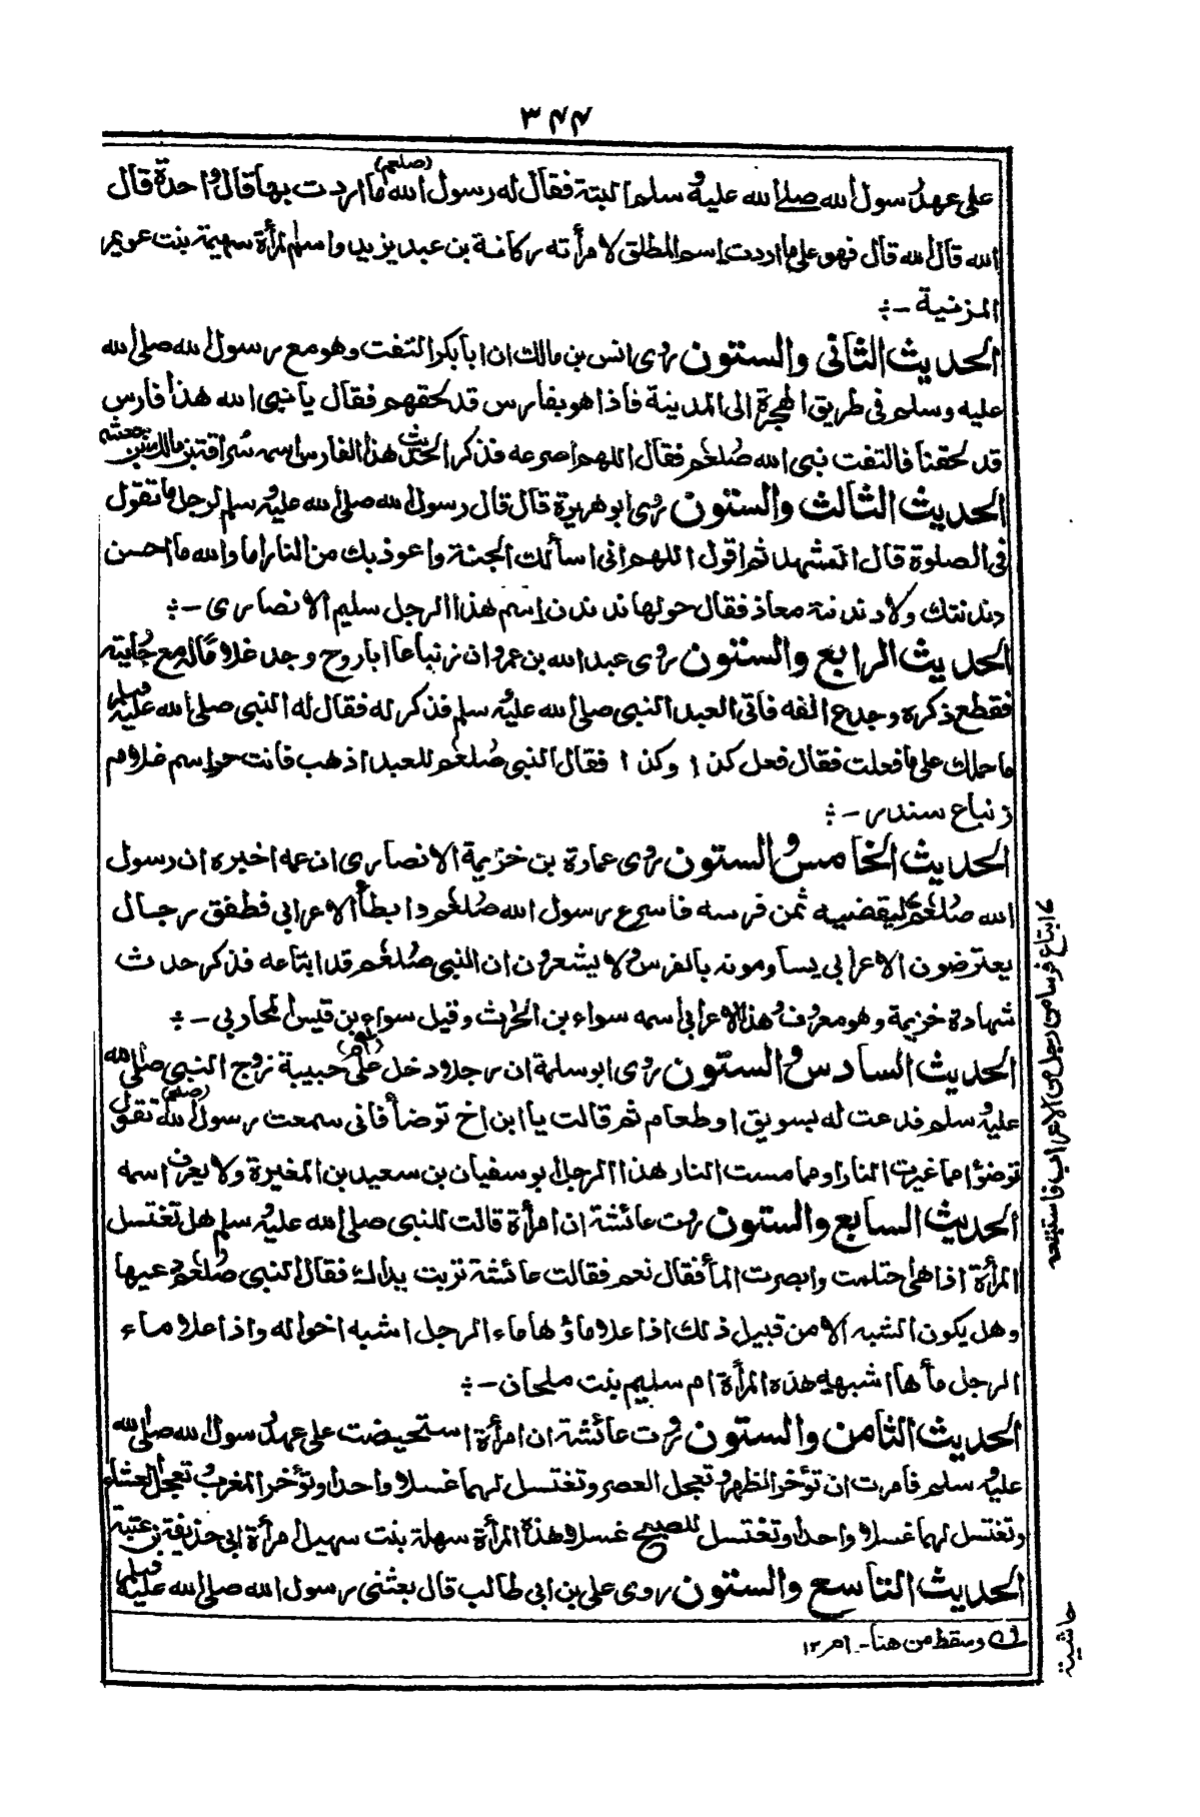 ٣٤٤
على عهد رسول الله صلے الله عليه وسلم البتة فقال له رسول الله (صلعم) ما اردت بها قال واحدة قال
الله قال الله قال فهو على ما اردت اسم المطلق لامرأته ركانة بن عبد يزيد واسم المرأة سهيمة بنت عويمر
المزنية -:
الحديث الثاني والستون روى انس بن مالك ان ابا بكر التفت وهو مع رسول الله صلى الله
عليه وسلم في طريق الهجرة الى المدينة فاذا هو بفارس قد لحقهم فقال يا نبي الله هذا فارس
قد لحقنا فالتفت نبي الله صلعم فقال اللهم اصرعه فذكر الحديث هذا الفارس اسمه سراقة بن مالك بن جعشم
الحديث الثالث والستون روى ابو هريرة قال قال رسول الله صلى الله عليه وسلم لرجل ما تقول
في الصلوة قال اتشهد ثم اقول اللهم انى اسألك الجنة واعوذ بك من النار اما والله ما احسن
دندنتك ولا دندنة معاذ فقال حولها ندندن اسم هذا الرجل سليم الانصارى -:
الحديث الرابع والستون روى عبد الله بن عمرو ان زنباعا ابا روح وجد غلاما له مع جاريته
فقطع ذكره وجدع انفه فاتى العبد النبي صلى الله عليه وسلم فذكر له فقال له النبي صلى الله عليه وسلم
ما حملك على ما فعلت فقال فعل كذا وكذا فقال النبي صلعم للعبد اذهب فانت حر اسم غلام
زنباع سندر -:
الحديث الخامس والستون روى عمارة بن خزيمة الانصارى ان عمه اخبره ان رسول
الله صلعم ليقضيه ثمن فرسه فاسرع رسول الله صلعم وابطأ الاعرابي فطفق رجال
يعترضون الاعرابي يساومونه بالفرس ولا يشعرون ان النبي صلعم قد ابتاعه فذكر حديث
شهادة خزيمة وهو معروف وهذا الاعرابي اسمه سواء بن الحرث وقيل سواء بن قيس المحاربي -:
الحديث السادس والستون روى ابو سلمة ان رجلا دخل على (ام) حبيبة زوج النبي صلى الله
عليه وسلم فدعت له بسويق او طعام ثم قالت يا ابن اخ توضأ فانى سمعت رسول الله (صلعم) تقول
توضؤا مما غيرت النار او مما مست النار هذا الرجل ابو سفيان بن سعيد بن المغيرة ولا يعرف اسمه
الحديث السابع والستون روت عائشة ان امرأة قالت للنبي صلى الله عليه وسلم هل تغتسل
المرأة اذا هى احتلمت وابصرت المأ فقال نعم فقالت عائشة تربت يداك فقال النبي صلعم دعيها
وهل يكون الشبه الا من قبيل ذلك اذا علا ماؤها ماء الرجل اشبه اخواله واذا علا ماء
الرجل مأها اشبهه هذه المرأة ام سليم بنت ملحان -:
الحديث الثامن والستون روت عائشة ان امرأة استحيضت على عهد رسول الله صلى الله
عليه وسلم فامرت ان تؤخر الظهر وتعجل العصر وتغتسل لهما غسلا واحدا وتؤخر المغرب وتعجل العشاء
وتغتسل لهما غسلا واحدا وتغتسل للصبح غسلا وهذه المرأة سهلة بنت سهيل امرأة ابي حذيفة بن عتبة
الحديث التاسع والستون روى على بن ابى طالب قال بعثنى رسول الله صلى الله عليه وسلم
وسقط من هنا - ام ١٢
ابتاع فرسا من رجل من الاعراب فاستتبعه
حاشية